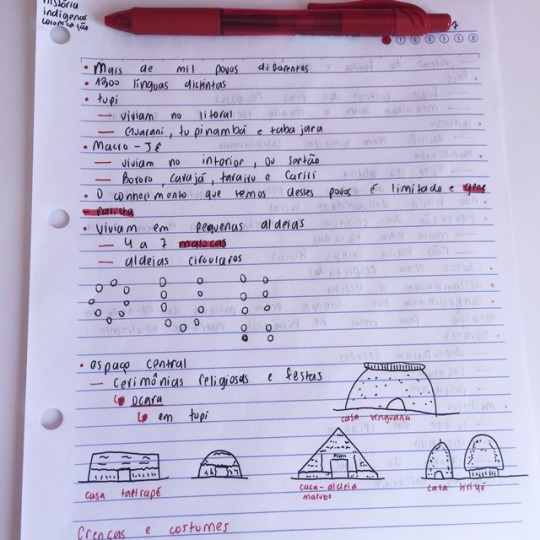 História
indígenas
colonização
• Mais de mil povos diferentes
• 1300 línguas distintas
• tupi
— viviam no litoral
— Guarani, tupinambá e tabajara
• Macro-Jê
— viviam no interior, ou sertão
— Bororo, carajá, tarairu e Cariri
• O conhecimento que temos desses povos é limitado e gene
ralista
• Viviam em pequenas aldeias
— 4 a 7 malocas
— aldeias circulares
• espaço central
— cerimônias religiosas e festas
↳ ocara
↳ em tupi
casa xinguana
casa tapirapé
casa-aldeia
marubo
casa
Crenças e costumes